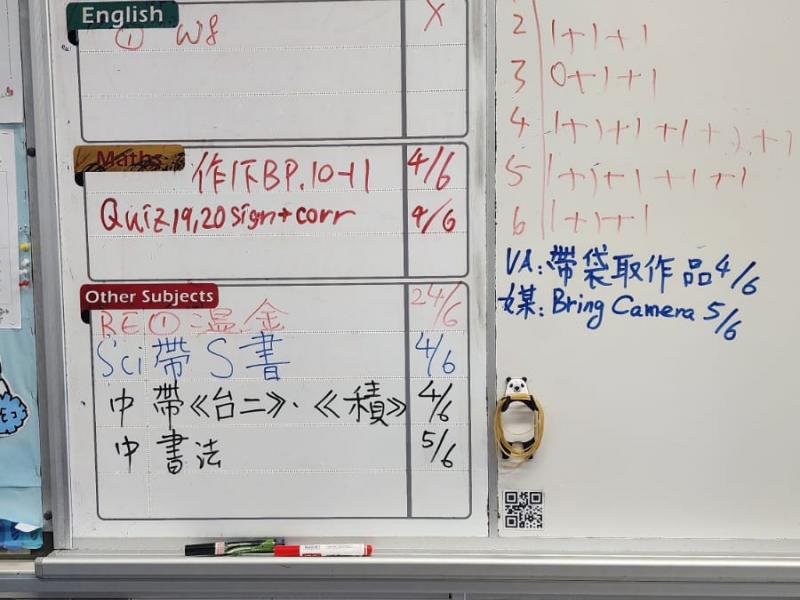 English
① W8 X
Maths
作1下BP.10-11 4/6
Quiz19,20 sign+corr 4/6
Other Subjects
RE① 温金 24/6
Sci 帶S書 4/6
中 帶《台二》.《積》 4/6
中 書法 5/6
2 1+1+1
3 0+1+1
4 1+1+1+1+1+1
5 1+1+1+1+1
6 1+1+1
VA: 帶袋取作品 4/6
媒: Bring Camera 5/6